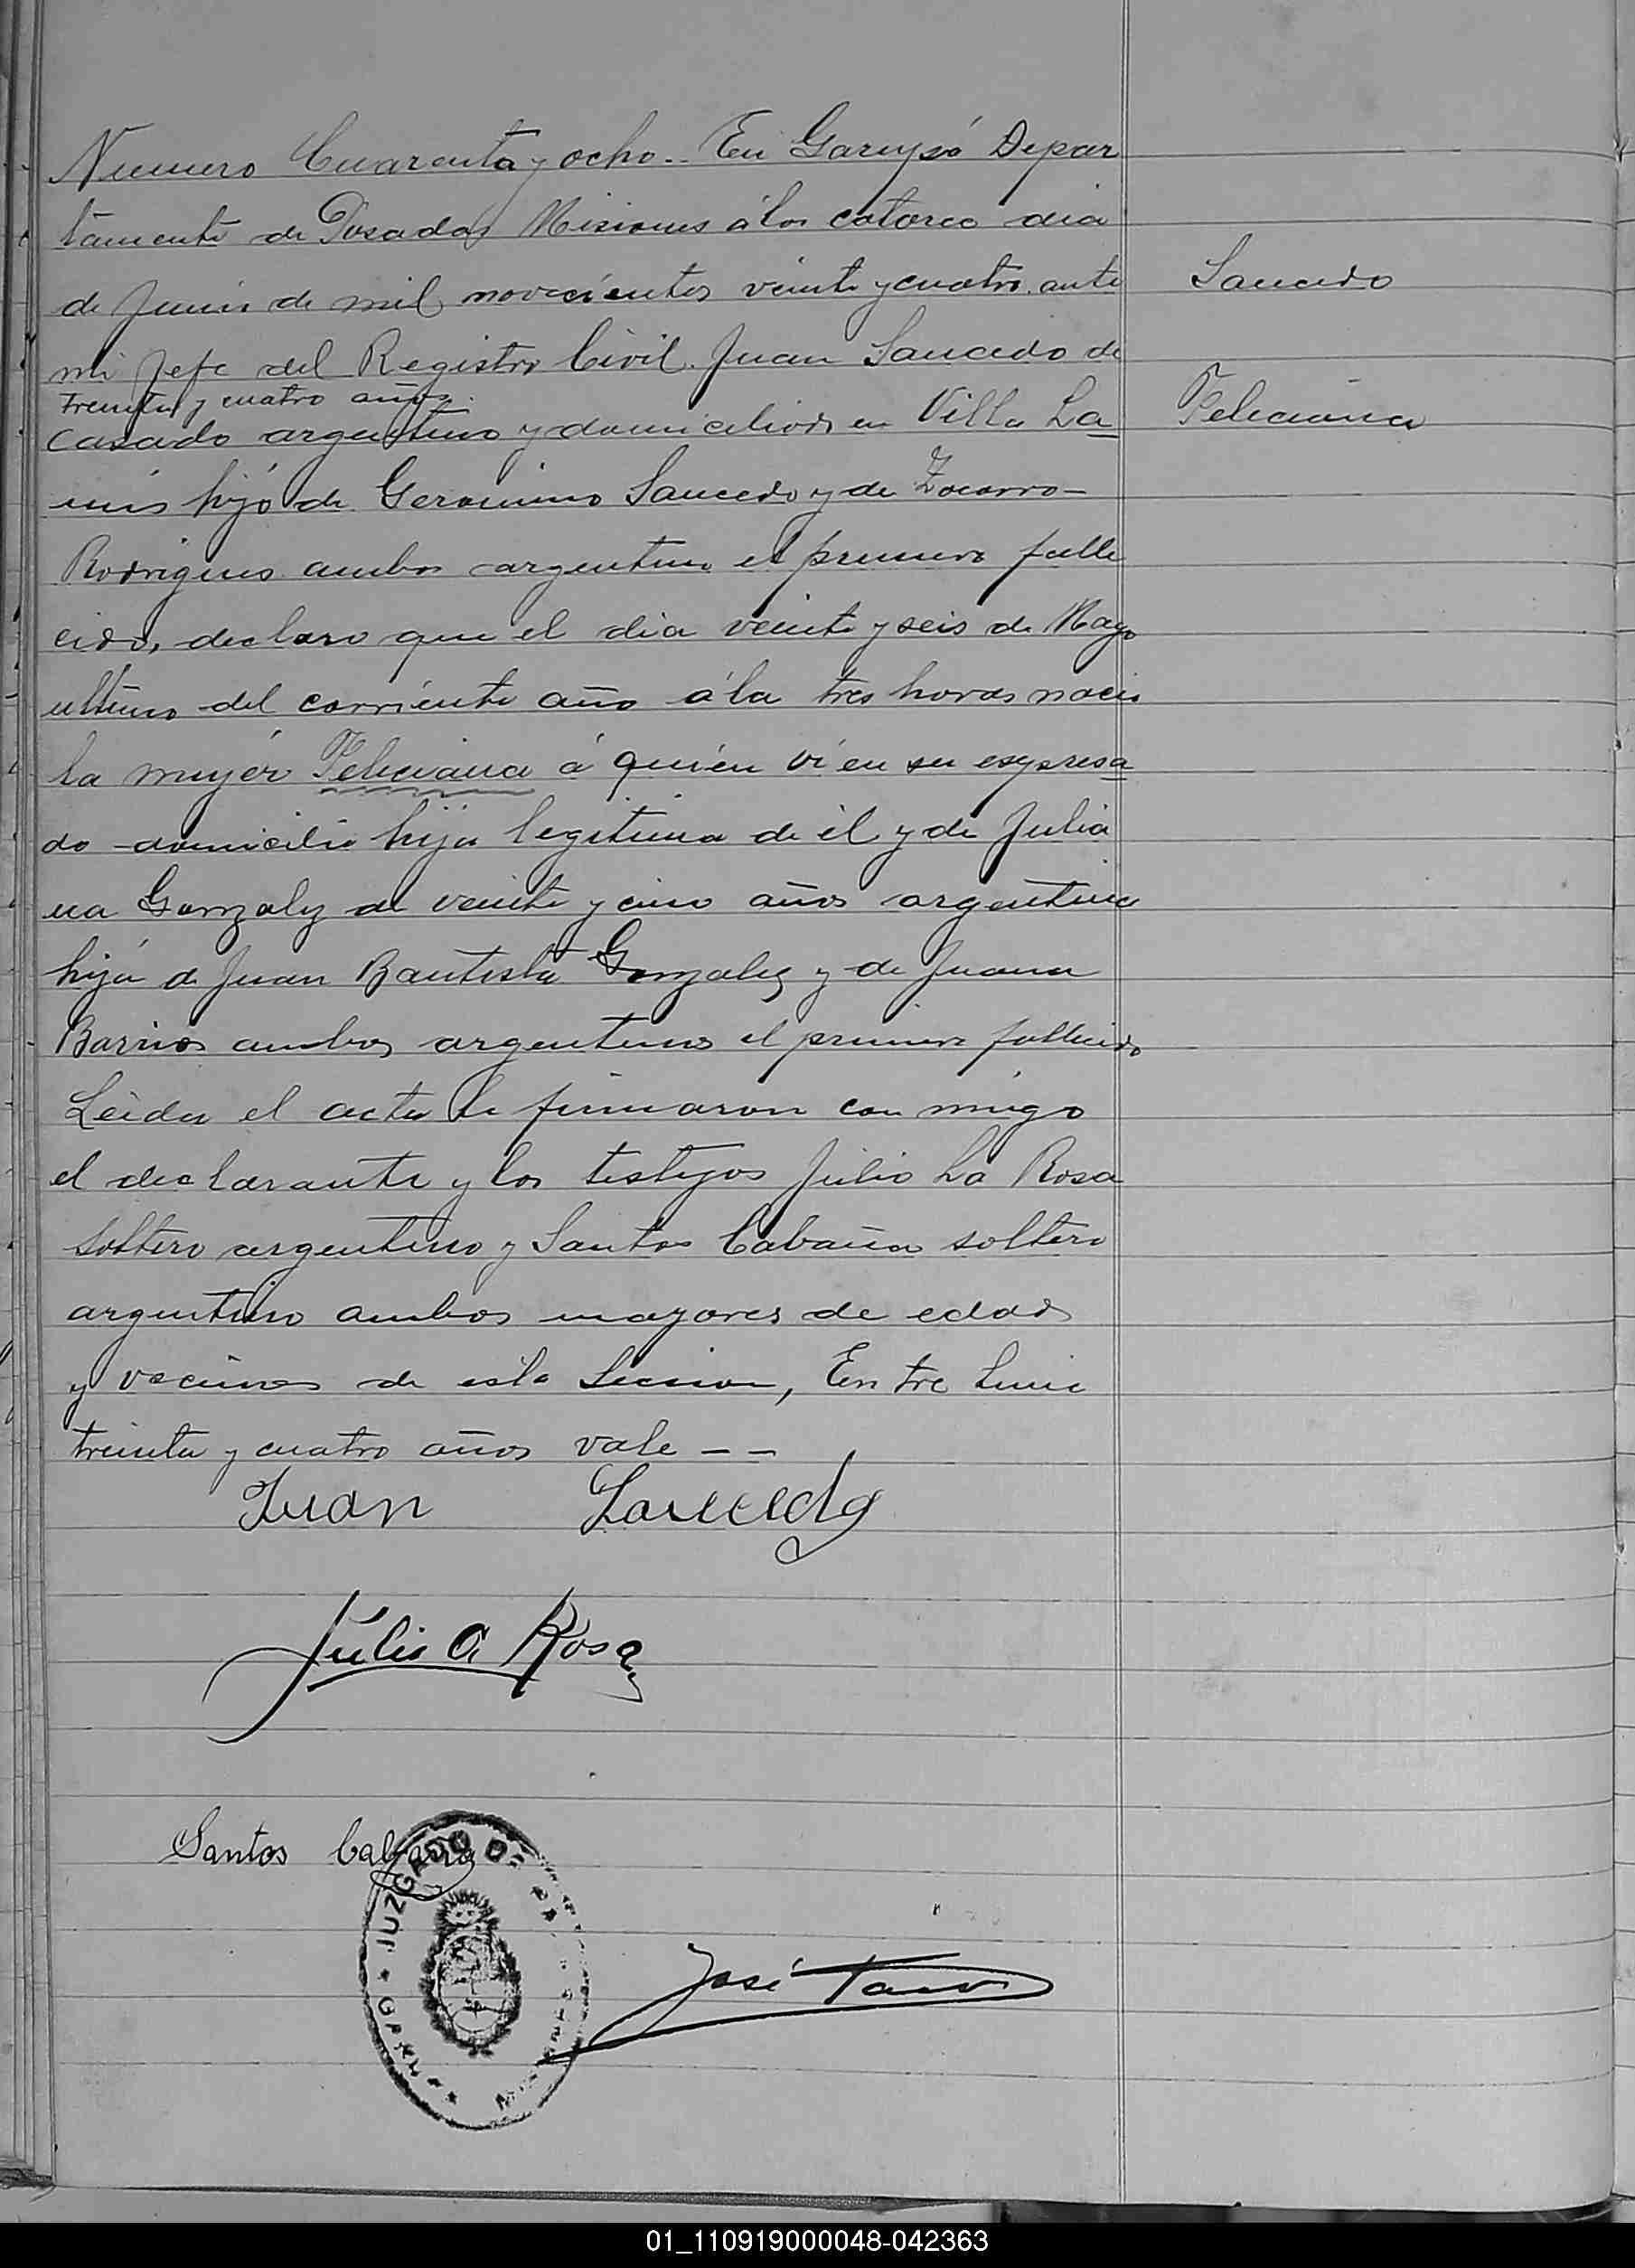 Numero Cuarenta y ocho.. En Garupá Depar
tamento de Posadas Misiones á los catorce dia
de Junio de mil novecientos veinte y cuatro. ante
Saucedo
mi Jefe del Registro Civil. Juan Saucedo de
treinta y cuatro años.
casado argentino y domiciliado en Villa La
Feliciana
nús hijo de Geronimo Saucedo y de Zocorro
Rodrigues ambos argentino el primero falle
cido, declaro que el dia veinte y seis de Mayo
ultimo del corriente año á la tres horas nacio
la mujer Feliciana á quién ví en su espresa
do domicilio hija legitima de él y de Julia
na Gonzalez de veinte y cinco años argentina
hija de Juan Bautista Gonzalez y de Juana
Barrios ambos argentinos el primero fallecido
Leida el acta la firmaron con migo
el declarante y los testigos Julio La Rosa
soltero argentino y Santos Cabaña soltero
argentino ambos mayores de edad
y vecinos de esta Seccion, Entre linia
treinta y cuatro años vale - -
Juan Saucedo
Julio A Rosa
Santos Cabaña
JUZGADO DE PAZ
José
01_110919000048-042363